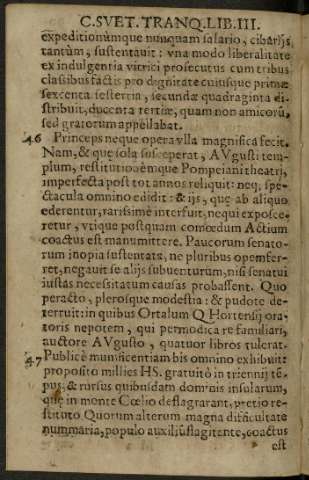 C. SVET. TRANQ. LIB. III.
expeditionumque nunquam salario, cibarijs
tantùm, sustentauit: vna modo liberalitate
ex indulgentia vitrici prosecutus cum tribus
classibus factis pro dignitate cuiusque primæ
sexcenta sestertia, secundæ quadraginta di-
stribuit, ducenta tertiæ, quam non amicorũ,
sed gratorum appellabat.
46 Princeps neque opera vlla magnifica fecit.
Nam, & quæ sola susceperat, AVgusti tem-
plum, restitutionémque Pompeiani theatri,
imperfecta post tot annos reliquit: neq; spe-
ctacula omnino edidit: & ijs, quæ ab aliquo
ederentur, rarissimè interfuit, nequi exposce-
retur, vtique postquam comœdum Actium
coactus est manumittere. Paucorum senato-
rum inopia sustentata, ne pluribus opem fer-
ret, negauit se alijs subuenturum, nisi senatui
iustas necessitatum causas probassent. Quo
peracto, plerosque modestia: & pudote de-
terruit: in quibus Ortalum Q Hortensij ora-
toris nepotem, qui permodica re familiari,
auctore AVgusto, quatuor libros tulerat.
47 Publicè munificentiam bis omnino exhibuit:
proposito millies HS. gratuitò in triennij tẽ-
pus: & rursus quibusdam dominis insularum,
quæ in monte Cœlio deflagrarant, pretio re-
stituto Quorum alterum magna difficultate
nummaria, populo auxiliũ flagitente, coactus
est